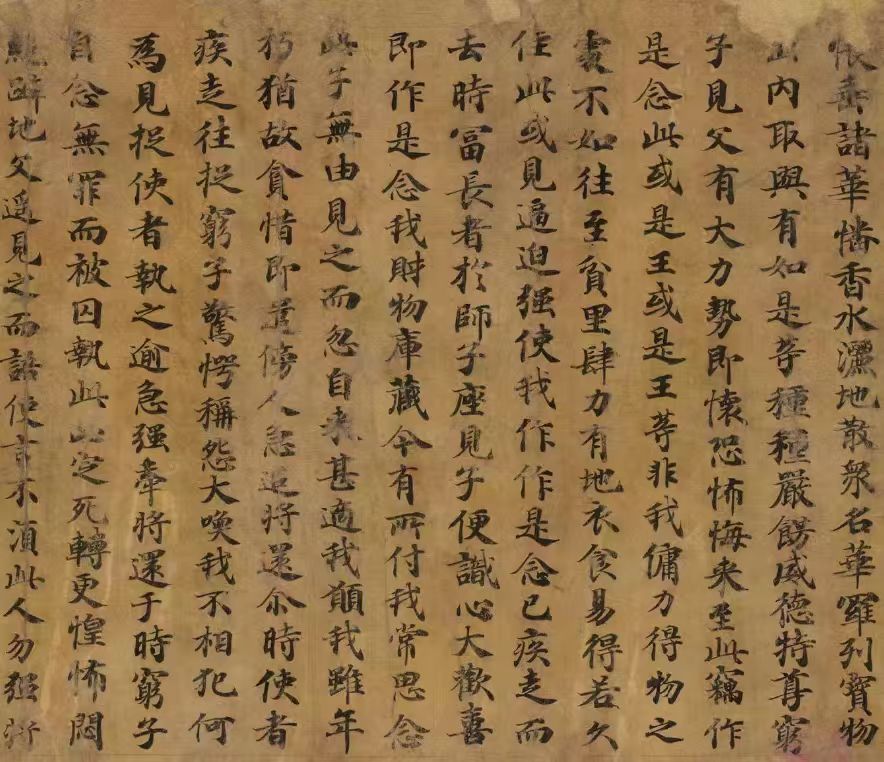 帳垂諸華幡香水灑地散眾名華羅列寶物
出內取與有如是等種種嚴餝威德特尊窮
子見父有大力勢即懷恐怖悔来至此竊作
是念此或是王或是王等非我傭力得物之
處不如往至貧里肆力有地衣食易得若久
住此或見逼迫强使我作作是念已疾走而
去時冨長者於師子座見子便識心大歡喜
即作是念我財物庫藏今有所付我常思念
此子無由見之而忽自来甚適我願我雖年
朽猶故貪惜即遣傍人急追將還尒時使者
疾走往捉窮子驚愕稱怨大喚我不相犯何
為見捉使者執之逾急强牽將還于時窮子
自念無罪而被囚執此必定死轉更惶怖悶
絶躃地父遥見之而語使言不湏此人勿强將